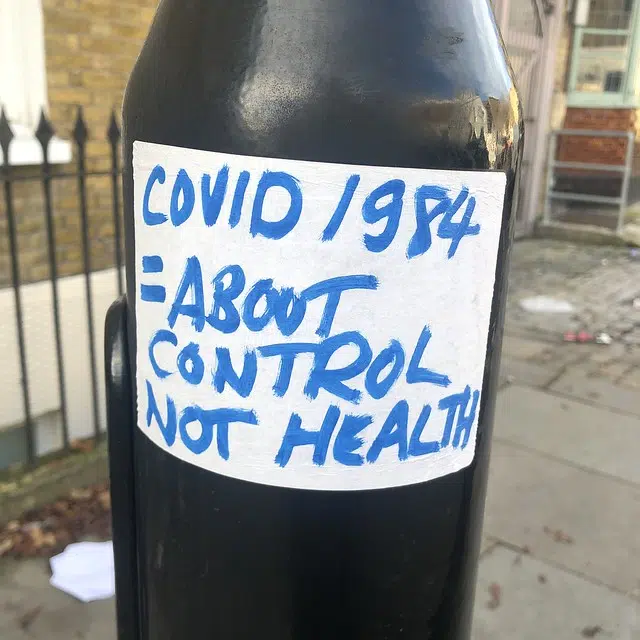 COVID 1984
=ABOUT
CONTROL
NOT HEALTH